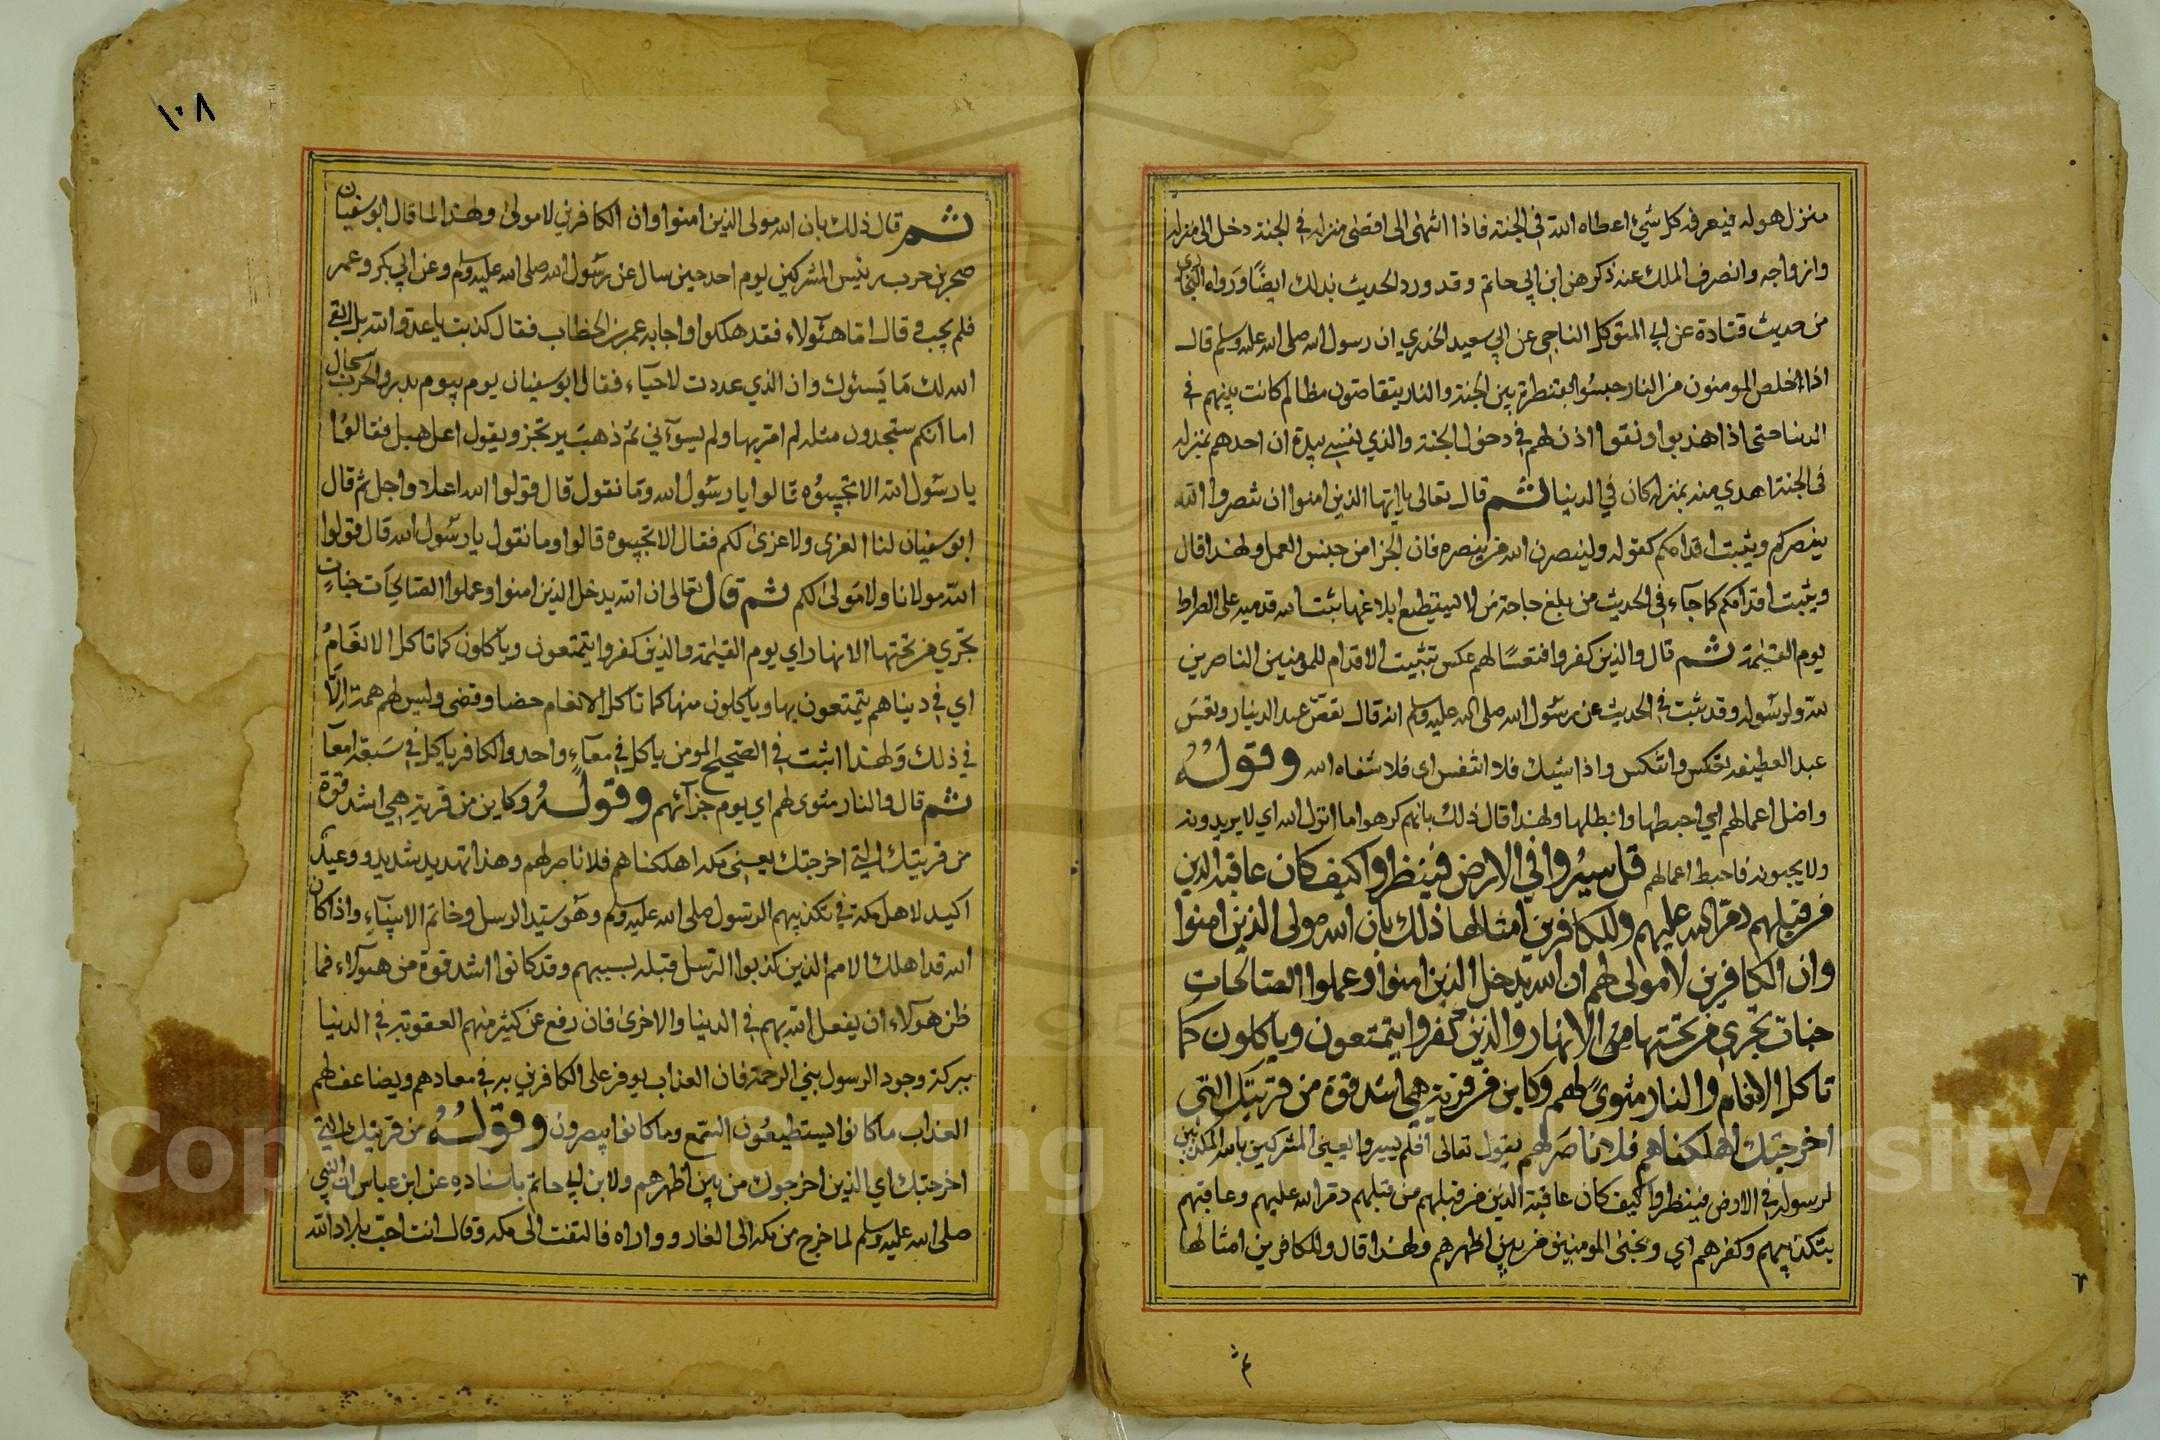 منزل هوله فيعرفه كل شئ اعطاه الله في الجنة فاذا انتهى الى اقصى منزله في الجنة دخل الى منزله
وازواجه وانصرف الملك عنه ذكرهن ابن ابي حاتم وقد ورد الحديث بذلك ايضًا وَرواه البخاري
من حديث قتادة عن ابي المتوكل الناجي عن ابي سعيد الخدري ان رسول الله صلى الله عليه وسلم قال
اذا اخلص المومنون من النار حبسُوا بقنطرة بين الجنة والنار يتقاصّون مظالم كانت بينهم في
الدنيا حتى اذا هذبوا ونقوا اذن لهم في دخول الجنة والذي نفسي بيده ان احدهم بمنزله
في الجنة اهدى منه بمنزله كان في الدنيا ثم قال تعالى يا ايها الذين امنوا ان تنصروا الله
ينصركم ويثبت اقدامكم كقوله ولينصرن الله من ينصره فان الجزا من جنس العمل ولهذا قال
ويثبت اقدامكم كما جآء في الحديث من بلغ حاجة من لا يستطيع ابلاغها ثبت الله قدميه على الصراط
يوم القيٰمة ثم قال والذين كفروا فتعسًا لهم عكس تثبيت الاقدام للمؤمنين الناصرين
لله ولرسُوله وقد ثبت في الحديث عن رسُول الله صلى الله عليه وسلم انه قال تعسَ عبد الدينار وتعسَ
عبد القطيفة تعكس وانتكس واذا شيك فلا انتقش اي فلا شفاه الله وقولُهُ
واضل اعمالهم اي احبطها وابطلها ولهذا قال ذلك بانهم كرهوا ما انزل الله اي لا يريدونه
ولا يحبونه فاحبط اعمالهم قل سيُروا في الارض فينظروا كيف كان عاقبة الذين
من قبلهم دمّر الله عليهم وللكافرين امثالها ذلك بان الله مولى الذين امنوا
وان الكافرين لا مولى لهم ان الله يدخل الذين امنوا وعملوا الصالحات
جنات تجري من تحتها الانهار والذين كفروا يتمتعون وياكلون كما
تاكل الانعام والنار مثوىً لهم وكاين من قرية هي اشد قوة من قريتك التي
اخرجتك اهلكناهم فلا ناصَر لهم يقول تعالى افلم يسيروا يعني المشركين بالله المكذبين
لرسوله في الارض فينظروا كيف كان عاقبة الذين من قبلهم دمّر الله عليهم وعاقبهم
بتكذيبهم وكفرهم اي ونجى المومنين من بين اظهرهم ولهذا قال وللكافرين امثالها
١٠٨
ثم قال ذلك بان الله مولى الذين امنوا وان الكافرين لا مولى لهم ولهذا لما قال ابو سفيان
صخر بن حرب رئيس المشركين يوم احد حين سال عن رسُول الله صلى الله عليه وسلم وعن ابي بكر وعمر
فلم يجب وقال امّا هؤلاء فقد هلكوا واجابه عمر بن الخطاب فقال كذبت يا عدو الله بل ابقى
الله لك مَا يَسئوك وان الذي عددت لاحيآء فقال ابو سفيان يوم بيوم بدر والحرب سجال
اما انكم ستجدون مثله لم امر بها ولم يسوآني ثم ذهبَ يرتجز ويقول اعل هبل فقالوُا
يا رسُول الله الا تجيبوُه قالوا يا رسُول الله ومَا نقول قال قولوا الله اعلا واجل ثم قال
ابو سفيان لنا العزى ولا عزى لكم فقال الا تجيبوه قالوا وما نقول يا رسُول الله قال قولوا
الله مولانا ولا مَولى لكم ثم قال تعالى ان الله يدخل الذين امنوا وعملوا الصالحَات جنات
تجري من تحتها الانهار اي يوم القيٰمة والذين كفروا يتمتعون وياكلون كما تاكل الانعَامُ
اي في دنياهم يتمتعون بها وياكلون منها كما تاكل الانعام حضا وقضى وليس لهم همة الا
في ذلك وَلهذا اثبت في الصّحيح المومن ياكل في معآءٍ واحد والكافر ياكل في سَبعة امعآ
ثم قال والنار مثوى لهم اي يوم جزآئهم وقولُهُ وكاين من قرية هي اشد قوة
من قريتك التي اخرجتك يعني مكة اهلكناهم فلا ناصر لهم وهذا تهديد شديد ووعيدٌ
اكيد لاهل مكة في تكذيبهم الرسُول صلى الله عليه وسلم وهُو سيّد الرسل وخاتم الانبيآءِ واذا كان
الله قد اهلك الامم الذين كذبوا الرسل قبله بسببهم وقد كانوا اشد قوة من هؤلآء فما
ظن هؤلآء ان يفعل الله بهم في الدنيا والاخرى فان رفع عن كثير منهم العقوبة في الدنيا
ببركة وجود الرسول بني الرحمة فان العذاب يوفر على الكافرين به في معادهم ويضاعف لهم
العذاب ما كانوا يستطيعُون السّمع وما كانوا يبصرون وقولُهُ من قريتك التي
اخرجتك اي الذين اخرجوك من بين اظهرهم ولابن ابي حاتم باسنادهِ عن ابن عباس ان النبي
صلى الله عليه وسلم لما خرج من مكة الى الغار وواراه فالتفت الى مكة وقال انت احبّ بلاد الله
Copyright © King Saud University